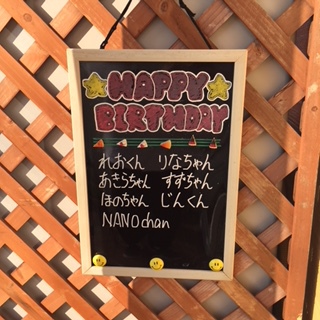 HAPPY
BIRTHDAY
れおくん りなちゃん
あきらちゃん すずちゃん
ほのちゃん じんくん
NANOchan